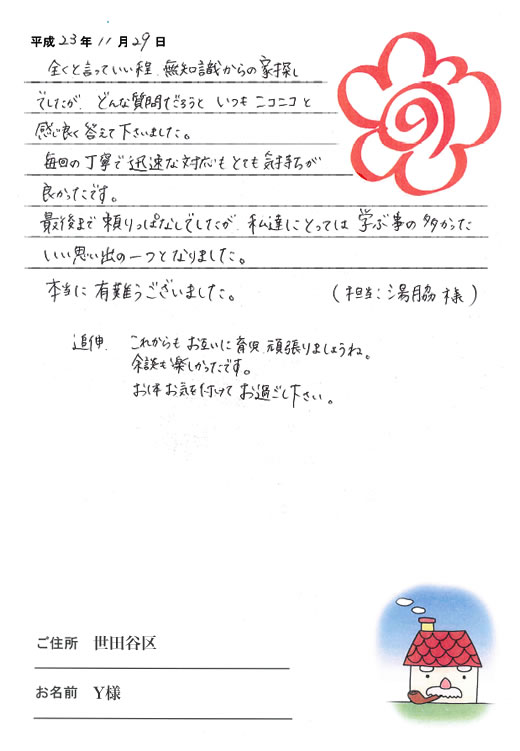 平成23年11月29日
全くと言っていい程、無知識からの家探し
でしたが、どんな質問でだろうと いつも ニコニコと
感じ良く答えて下さいました。
毎回の丁寧で迅速な対応もとても気持ちが
良かったです。
最後まで頼りっぱなしでしたが、私達にとっては 学ぶ事の多かった
いい思い出の一つとなりました。
本当に有難うございました。 (担当:湯脇様)
追伸、これからも お互いに育児、頑張りましょうね。
余談も楽しかったです。
お体お気を付けてお過ごし下さい。
ご住所 世田谷区
お名前 Y様